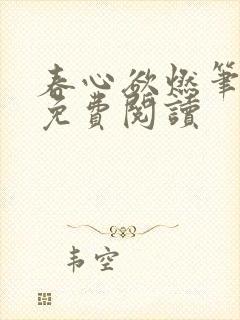 春心欲燃笔
免費閱讀
韦空